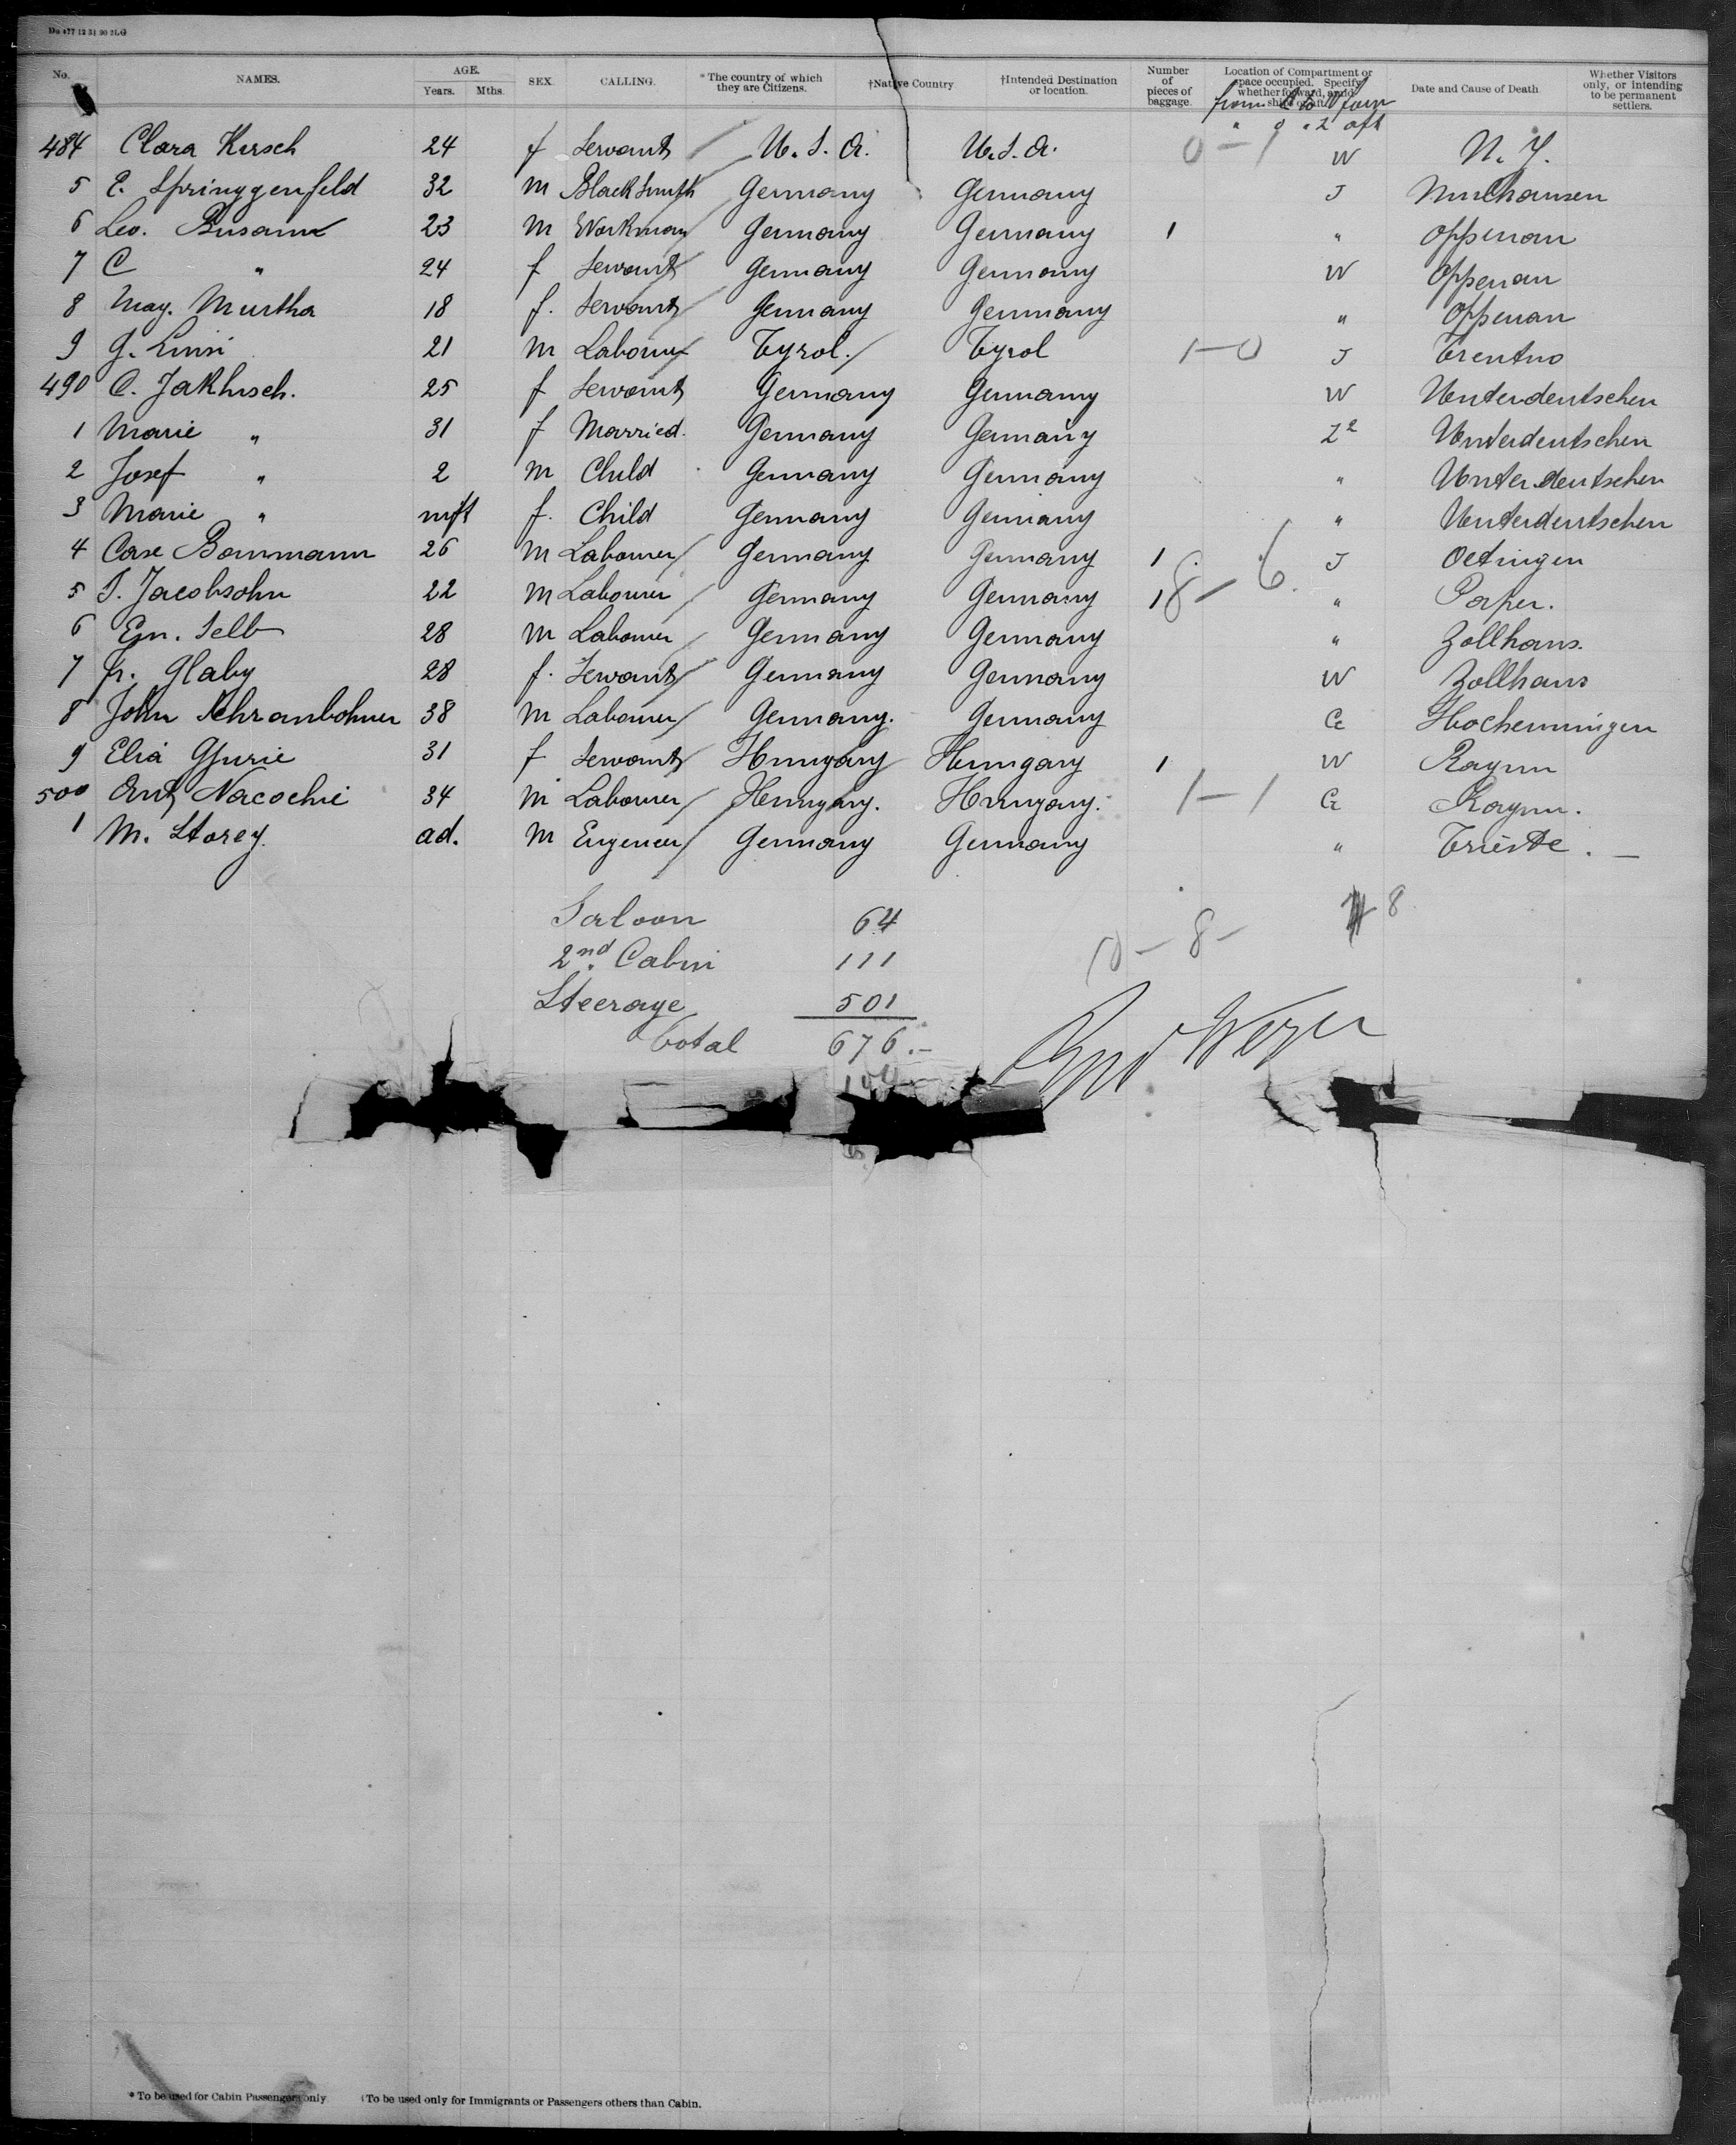 Do 477 12 31 90 2LG
No. NAMES. AGE. Years. Mths. SEX. CALLING. *The country of which they are Citizens. †Native Country †Intended Destination or location. Number of pieces of baggage. Location of Compartment or space occupied. Specify whether forward, amidships or aft. Date and Cause of Death Whether Visitors only, or intending to be permanent settlers.
from 0 to 0 forw
" 0 " 2 aft
484 Clara Kirsch 24 f Servant U. S. A. U. S. A. 0-1 W N. Y.
5 E. Springgenfeld 32 m Blacksmith Germany Germany J Mulhausen
6 Leo. Busam 23 m Workman Germany Germany 1 " Oppenau
7 C " 24 f Servant Germany Germany W Oppenau
8 May. Murtha 18 f. Servant Germany Germany " Oppenau
9 G. Linsi 21 m Labourer Tyrol. Tyrol 1-0 J Trentno
490 C. Jakhisch. 25 f Servant Germany Germany W Unterdeutschen
1 Marie " 31 f Married. Germany Germany Z2 Unterdeutschen
2 Josef " 2 m Child Germany Germany " Unterdeutschen
3 Marie " inft f. Child Germany Germany " Unterdeutschen
4 Case Bornmann 26 m Labourer Germany Germany 1 J Oetingen
18-6.
5 S. Jacobsohn 22 m Labourer Germany Germany 1 "
6 Em. Selb 28 m Labourer Germany Germany " Zollhaus.
7 Fr. Glaby 28 f. Servant Germany Germany W Zollhaus
8 John Schranbohmer 38 m Labourer Germany. Germany G Hochemmingen
9 Elia Gjurie 31 f Servant Hungary Hungary 1 W Rayun
500 Ant. Nacochie 34 m Labourer Hungary. Hungary. 1-1 G Rayun.
1 M. Storey. ad. m Engeneer Germany Germany " Trieste. —
Saloon 64 8
2nd. Cabin 111 10-8-
Steerage 501
Total 676.-
* To be used for Cabin Passengers only †To be used only for Immigrants or Passengers others than Cabin.